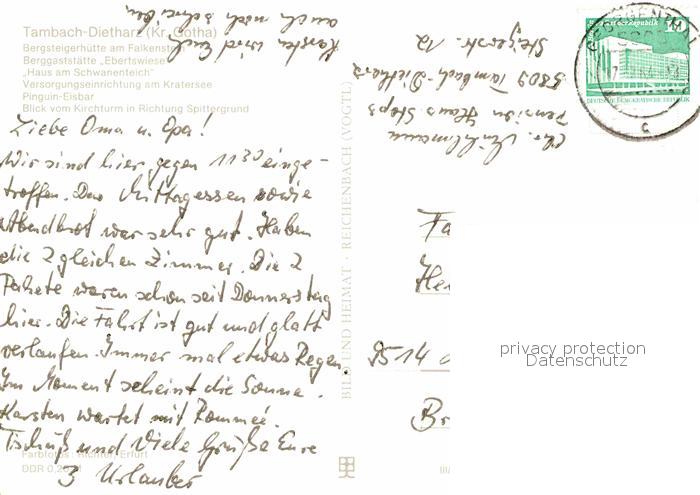 Tambach-Dietharz (Kr. Gotha)
Bergsteigerhütte am Falkenstein
Berggaststätte „Ebertswiese"
„Haus am Schwanenteich"
Versorgungseinrichtung am Kratersee
Pinguin-Eisbar
Blick vom Kirchturm in Richtung Spittergrund
Liebe Oma u. Opa!
Wir sind hier gegen 11 30 einge-
troffen. Das Mittagessen sowie
Abendbrot war sehr gut. Haben
die 2 gleichen Zimmer. Die 2
Pakete waren schon seit Donnerstag
hier. Die Fahrt ist gut und glatt
verlaufen. Immer mal etwas Regen.
Im Moment scheint die Sonne.
Karsten wartet mit Rommeé.
Tschüß und Viele Grüße Eure
3 Urlauber
Karsten wird Euch
auch noch schreiben
Farbfotos: Richter, Erfurt
DDR 0,20 M
BILD UND HEIMAT · REICHENBACH (VOGTL)
Chr.
Pension Haus Steps
5809 Tambach-Dietharz
Steigerstr. 12
10
DEUTSCHE DEMOKRATISCHE REPUBLIK
GEORGENTHAL
5805
c
Fa
Her
9514
Br
privacy protection
Datenschutz
III/